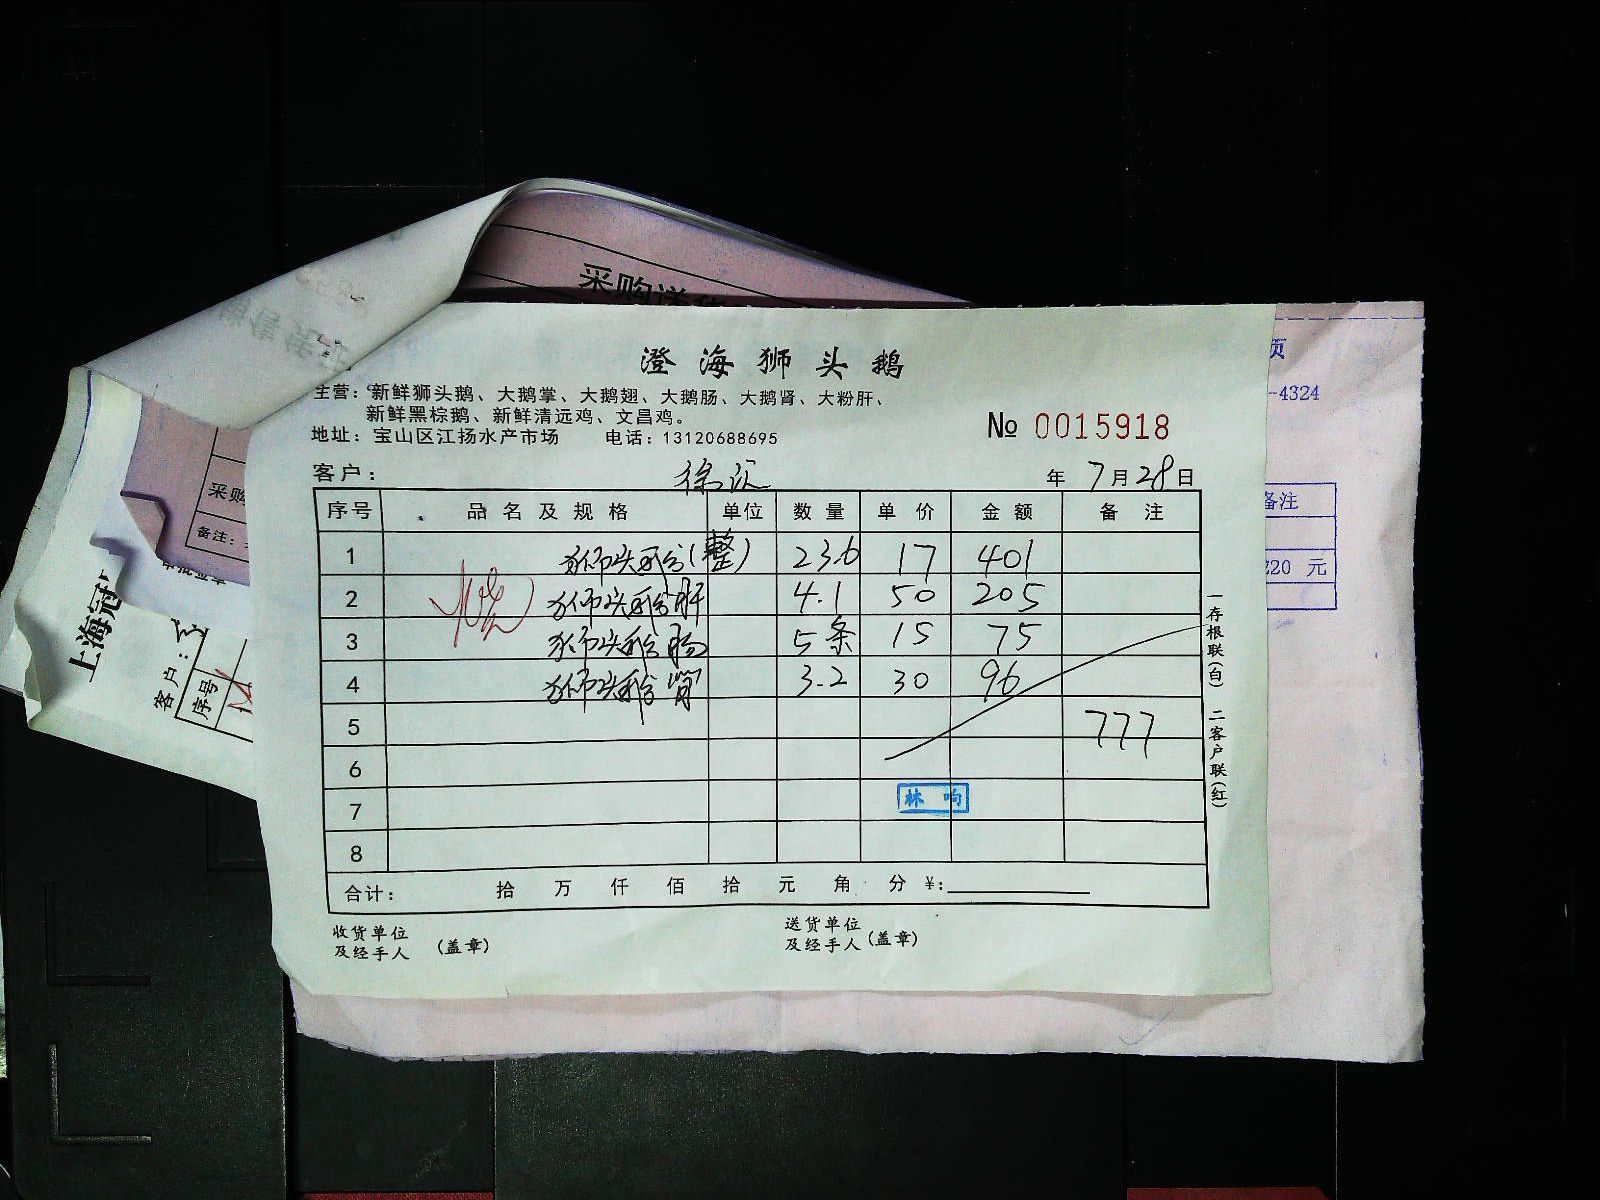 采购送货
页
-4324
备注
220 元
采购
备注:
审批签章
上海冠
客户:
序号
澄海狮头鹅
主营:新鲜狮头鹅、大鹅掌、大鹅翅、大鹅肠、大鹅肾、大粉肝、
新鲜黑棕鹅、新鲜清远鸡、文昌鸡。
地址:宝山区江扬水产市场 电话:13120688695
№ 0015918
客户: 徐汇 年 7月28日
序号 品名及规格 单位 数量 单价 金额 备注
1 狮头鹅(整) 23.6 17 401
2 狮头鹅肝 4.1 50 205
3 狮头鹅肠 5条 15 75
4 狮头鹅肾 3.2 30 96
5 777
6
7 林响
8
合计: 拾 万 仟 佰 拾 元 角 分 ¥:
收货单位
及经手人 (盖章)
送货单位
及经手人 (盖章)
一存根联(白) 二客户联(红)